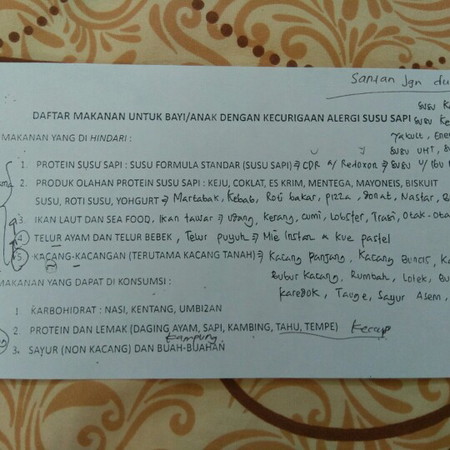 Santan Jgn du
DAFTAR MAKANAN UNTUK BAYI/ANAK DENGAN KECURIGAAN ALERGI SUSU SAPI
susu Ke
Yakult, Ener
susu UHT, su
MAKANAN YANG DI HINDARI :
1. PROTEIN SUSU SAPI : SUSU FORMULA STANDAR (SUSU SAPI) → CDR & Redoxon → susu u/ ibu
2. PRODUK OLAHAN PROTEIN SUSU SAPI : KEJU, COKLAT, ES KRIM, MENTEGA, MAYONEIS, BISKUIT
SUSU, ROTI SUSU, YOHGURT → Martabak, Kebab, Roti bakar, pizza, Donat, Nastar,
3. IKAN LAUT DAN SEA FOOD, Ikan tawar → udang, kerang, cumi, Lobster, Trasi, Otak-Ota
4. TELUR AYAM DAN TELUR BEBEK, Telur puyuh → Mie Instan & kue pastel
5. KACANG-KACANGAN (TERUTAMA KACANG TANAH) → Kacang Panjang, Kacang Buncis, Ka
Bubur Kacang, Rumbah, Lotek, Bu
Karedok, Tauge, Sayur Asem,
MAKANAN YANG DAPAT DI KONSUMSI :
1 KARBOHIDRAT : NASI, KENTANG, UMBI2AN
2. PROTEIN DAN LEMAK (DAGING AYAM, SAPI, KAMBING, TAHU, TEMPE) Kecap
kampung
3. SAYUR (NON KACANG) DAN BUAH-BUAHAN